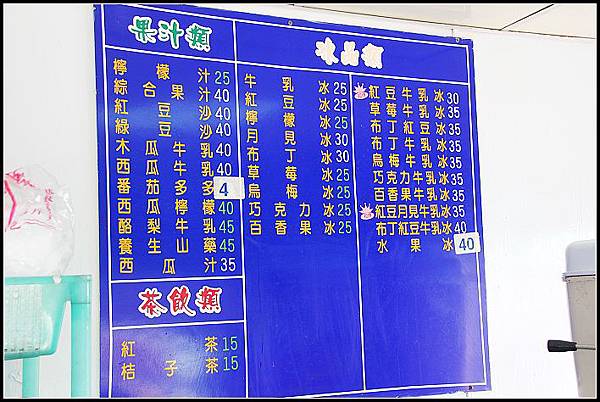 果汁類
檸檬汁25
綜合果汁40
紅豆沙40
綠豆沙40
木瓜牛乳40
西瓜牛乳40
番茄多多4
西瓜檸檬40
酪梨牛乳45
養生山藥45
西瓜汁35
茶飲類
紅茶15
桔子茶15
冰品類
牛乳冰25
紅豆冰25
檸檬冰25
月見冰30
布丁冰30
草莓冰25
烏梅冰25
巧克力冰25
百香果冰25
紅豆牛乳冰30
草莓牛乳冰35
布丁紅豆冰35
布丁牛乳冰35
烏梅牛乳冰35
巧克力牛乳冰35
百香果牛乳冰35
紅豆月見牛乳冰35
布丁紅豆牛乳冰40
水果冰40